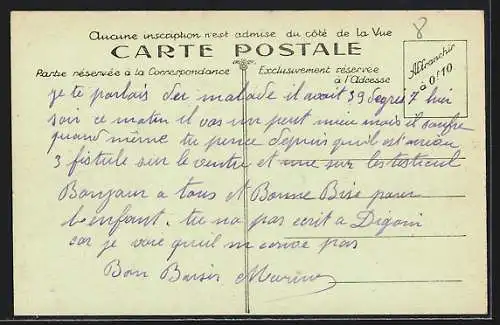 8
Aucune inscription n'est admise du côté de la Vue
CARTE POSTALE
Partie réservée à la Correspondance
Exclusivement réservée
à l'Adresse
Affranchir
à 0f10
je te parlais du malade il avait 39 degrés 7 hier
soir ce matin il vas un peut mieu mais il soufre
quand même tu pense depuis qu'il est
3 fistule sur le ventre et une sur les testicul
Bonjour a tous et Bonne Bise pour
l'enfant. tu na pas ecrit a Digoin
car je voie qu'il m pas
Bon Baiser